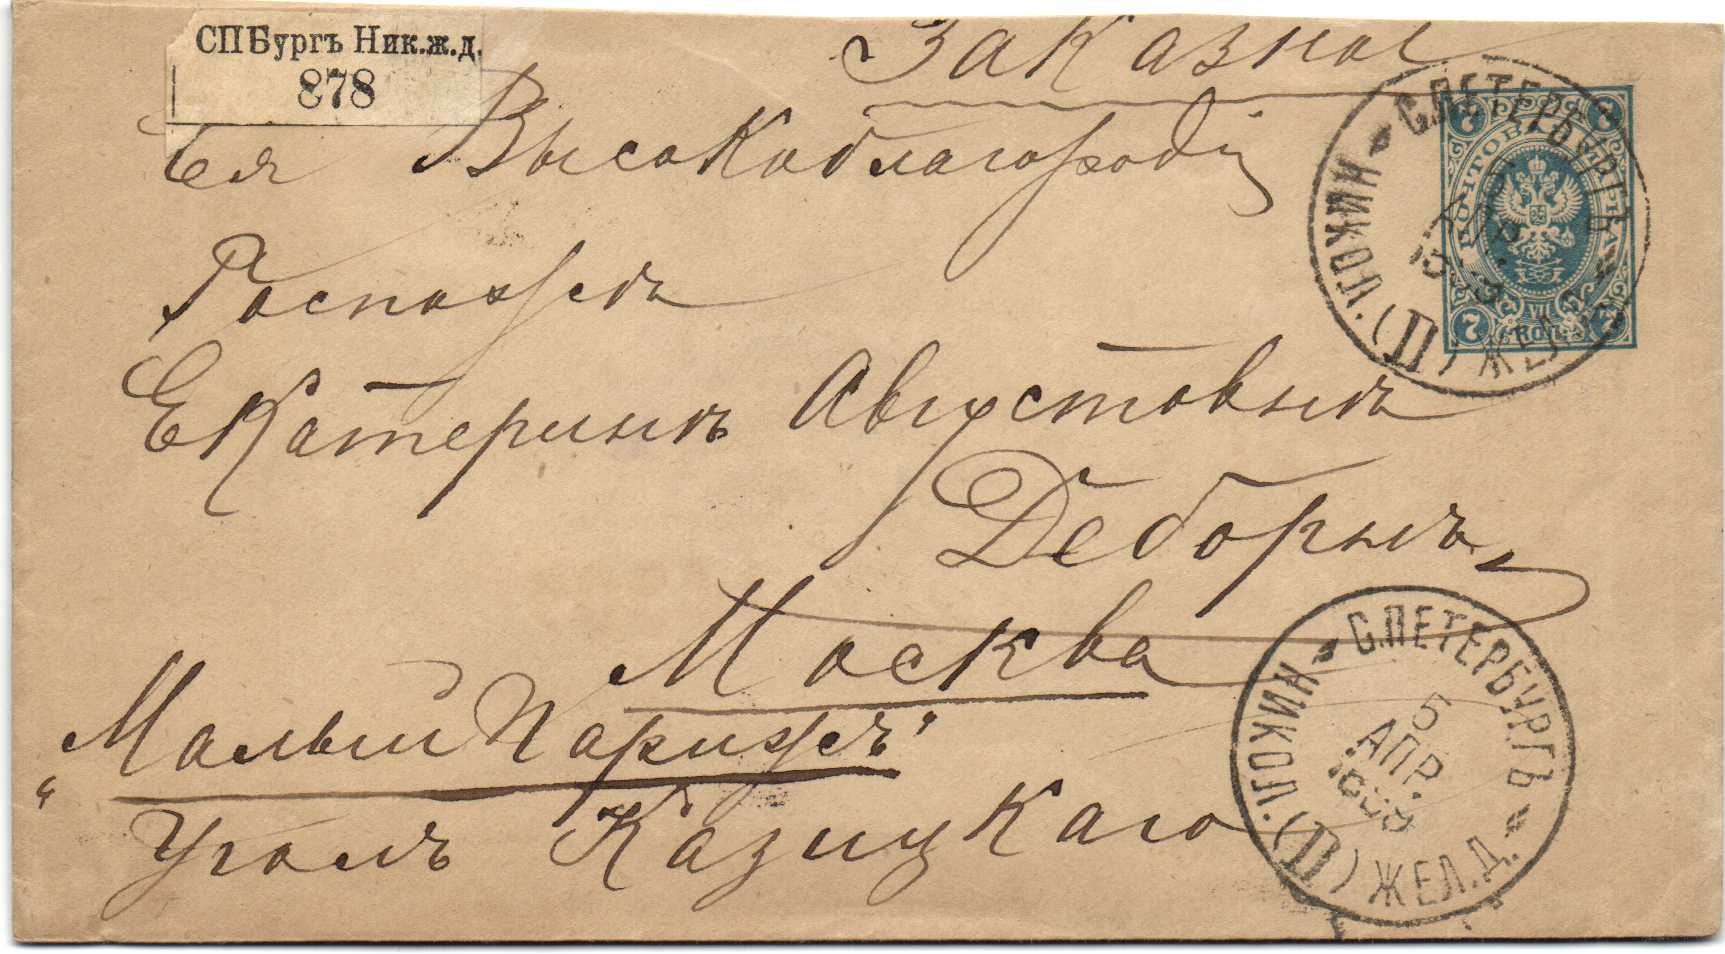 СПБургъ Ник.ж.д.
878
Заказное
Ея Высокоблагородiю
Госпожѣ
Екатеринѣ Августовнѣ
Деборнъ
Москва
„Малый Парижъ“
Уголъ Казицкаго
С.ПЕТЕРБУРГЪ
НИКОЛ. (П) ЖЕЛ.Д.
АПР.
ПОЧТОВАЯ МАРКА
7 7
7 7
КОП.
С.ПЕТЕРБУРГЪ
5
АПР.
НИКОЛ. (П) ЖЕЛ.Д.